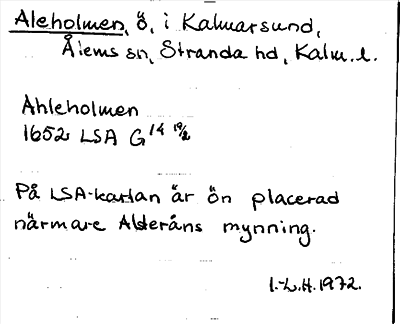 Aleholmen, ö, i Kalmarsund,
Ålems sn, Stranda hd, Kalm. l.
Ahleholmen
1652 LSA G 14 19/2
På LSA-kartan är ön placerad
närmare Alsteråns mynning.
I.-L.H. 1972.